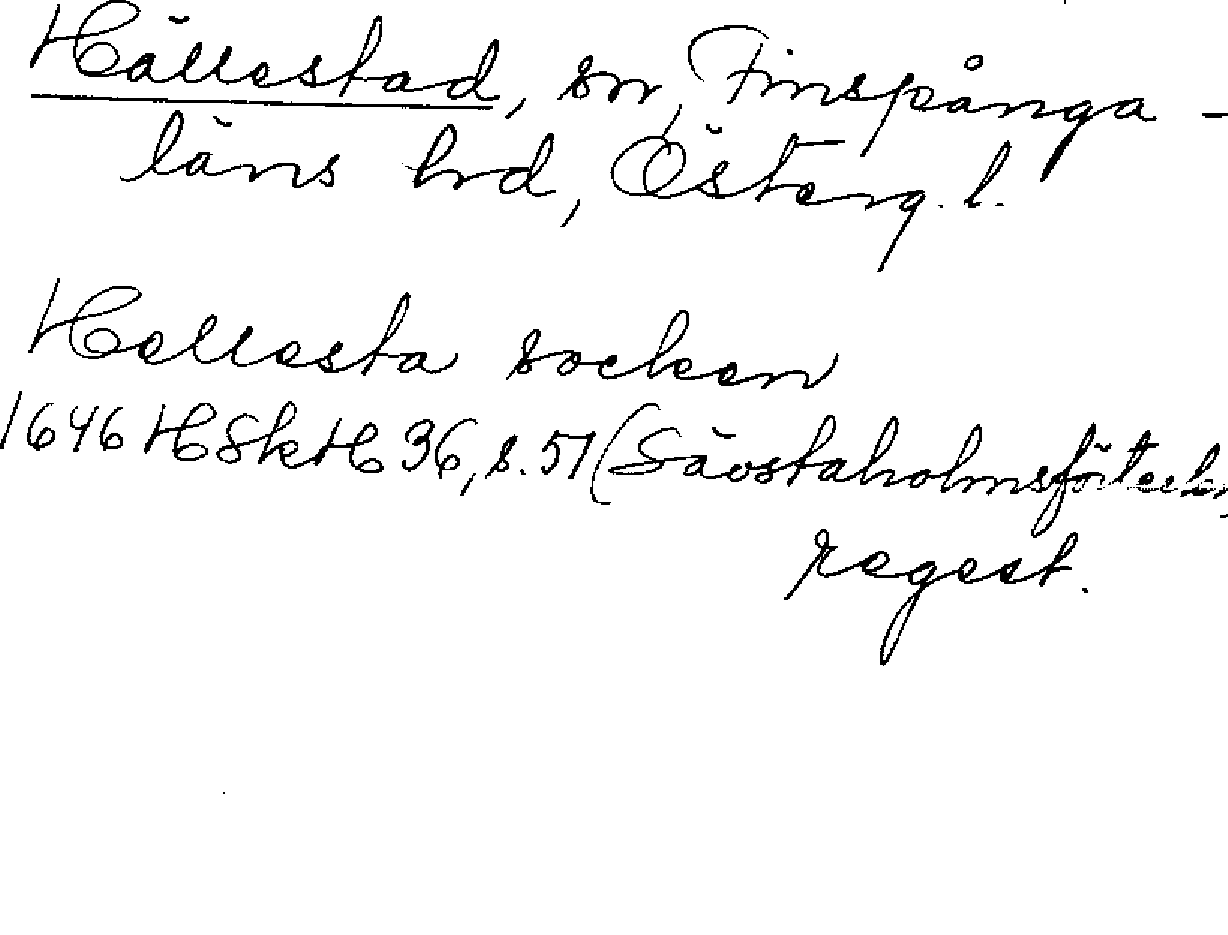 Hällestad, sn, Finspånga-
läns hrd, Österg. l.
Hellesta socken
1646 HSkH 36, s. 51 (Sävstaholmsförteckn,
regest.